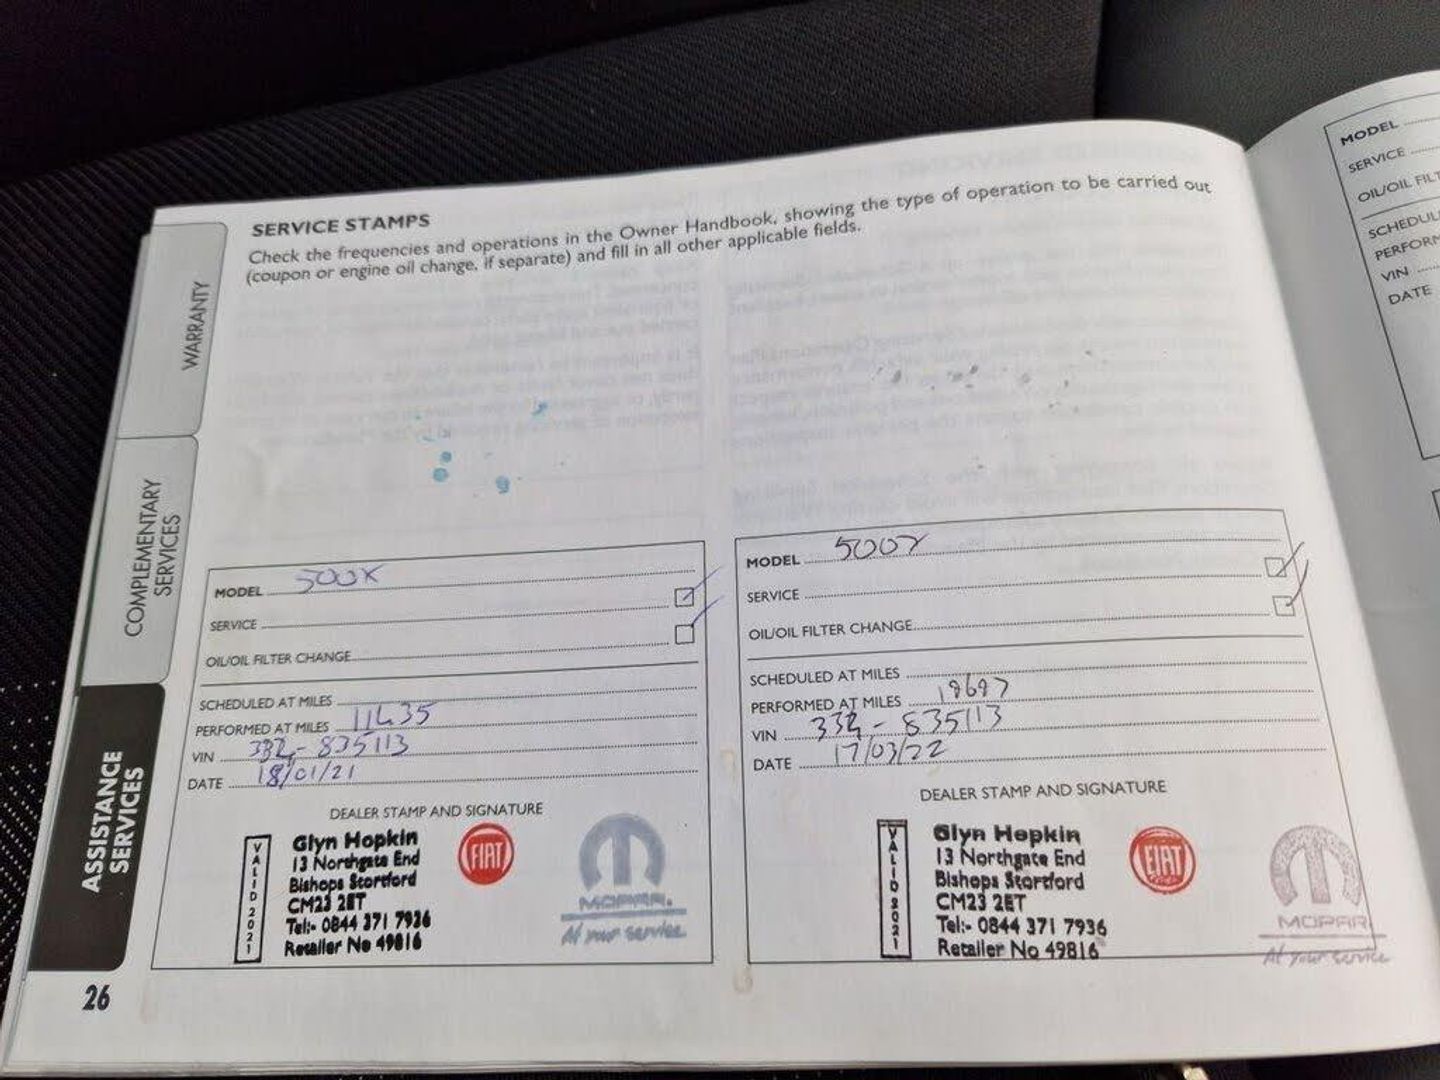 SERVICE STAMPS
Check the frequencies and operations in the Owner Handbook, showing the type of operation to be carried out
(coupon or engine oil change, if separate) and fill in all other applicable fields.
WARRANTY
COMPLEMENTARY
SERVICES
ASSISTANCE
SERVICES
MODEL 500X
SERVICE
OIL/OIL FILTER CHANGE
SCHEDULED AT MILES
PERFORMED AT MILES 11435
VIN 334- 835113
DATE 18/01/21
DEALER STAMP AND SIGNATURE
VALID 2021
Glyn Hopkin
13 Northgate End
Bishops Stortford
CM23 2ET
Tel:- 0844 371 7936
Retailer No 49816
FIAT
MOPAR.
At your service
MODEL 500X
SERVICE
OIL/OIL FILTER CHANGE
SCHEDULED AT MILES
PERFORMED AT MILES 19697
VIN 334 - 835113
DATE 17/03/22
DEALER STAMP AND SIGNATURE
VALID 2021
Glyn Hopkin
13 Northgate End
Bishops Stortford
CM23 2ET
Tel:- 0844 371 7936
Retailer No 49816
FIAT
MOPAR
At your service
26
MODEL
SERVICE
OIL/OIL FILT
SCHEDUL
PERFORM
VIN
DATE